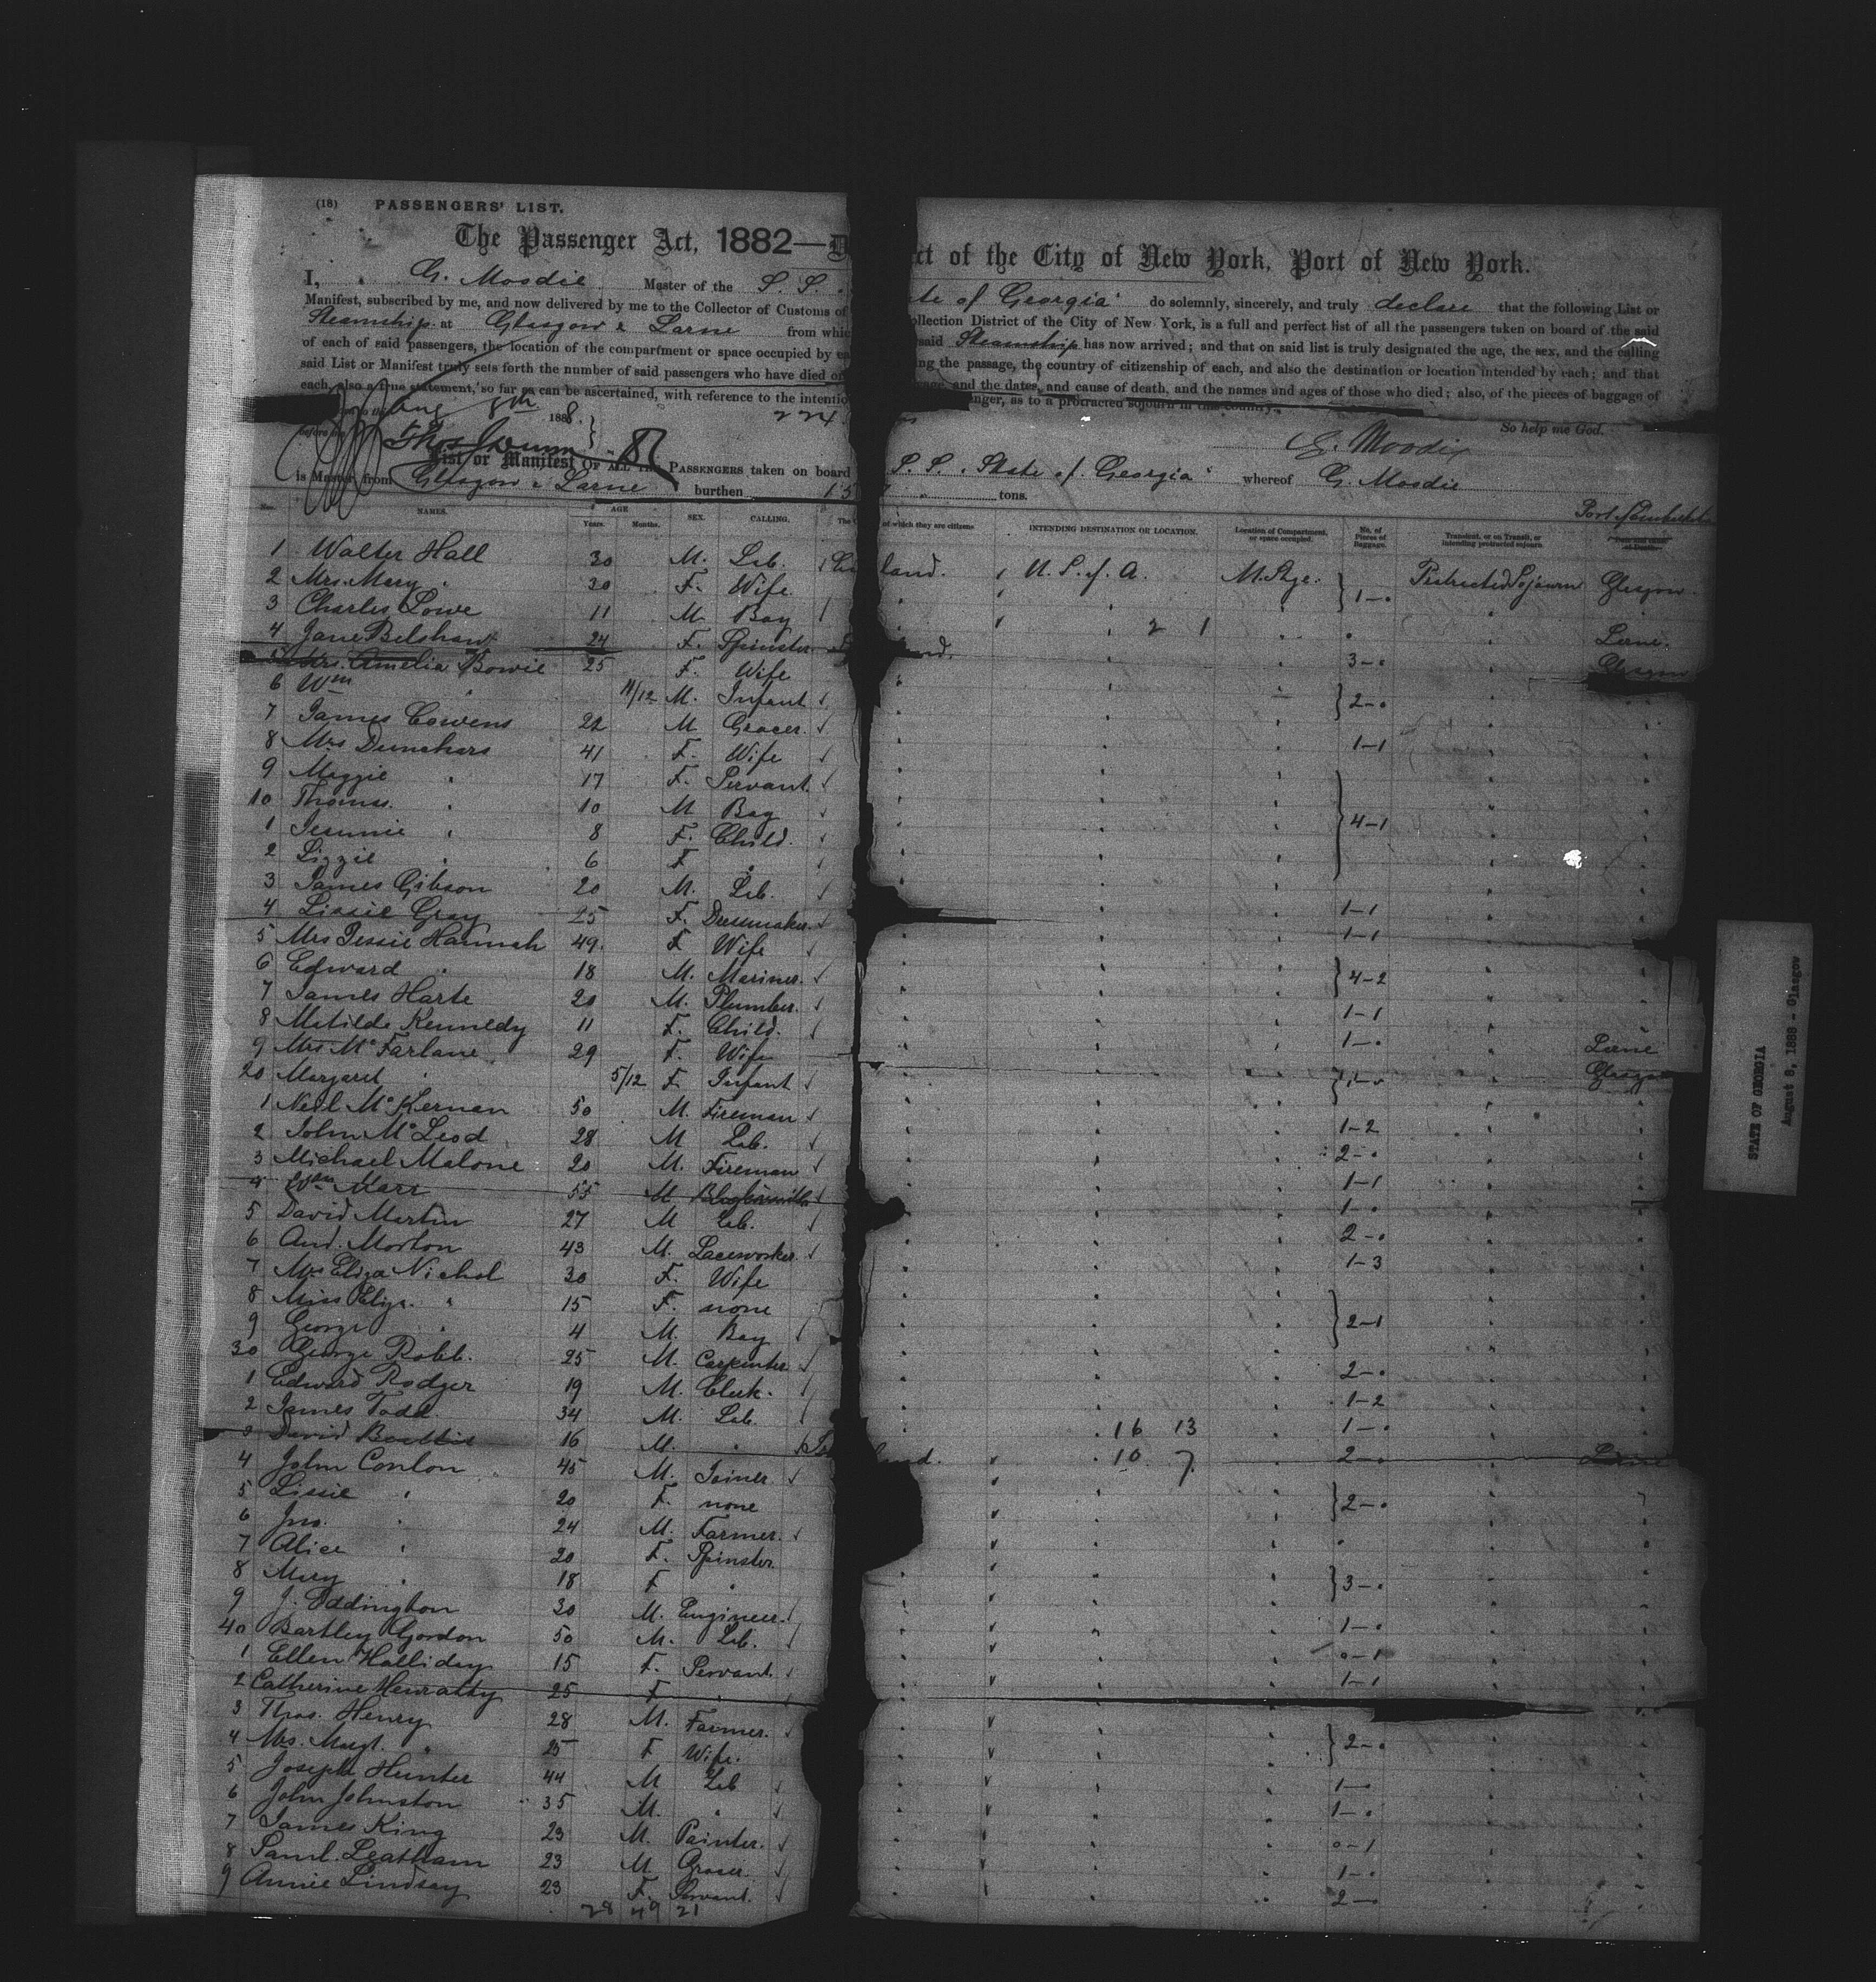 (18) PASSENGERS' LIST.
The Passenger Act, 1882—D ct of the City of New York, Port of New York.
I, G. Moodie Master of the S. S. te of Georgia" do solemnly, sincerely, and truly declare that the following List or
Manifest, subscribed by me, and now delivered by me to the Collector of Customs of ollection District of the City of New York, is a full and perfect list of all the passengers taken on board of the said
Steamship at Glasgow & Larne from whic said Steamship has now arrived; and that on said list is truly designated the age, the sex, and the calling
of each of said passengers, the location of the compartment or space occupied by ea ng the passage, the country of citizenship of each, and also the destination or location intended by each; and that
said List or Manifest truly sets forth the number of said passengers who have died on and the dates, and cause of death, and the names and ages of those who died; also, of the pieces of baggage of
each, also a true statement, so far as can be ascertained, with reference to the intentio nger, as to a protracted sojourn in this country.
Aug 8th 1888. 224 So help me God.
G. Moodie
List or Manifest OF ALL THE PASSENGERS taken on board S. S. "State of Georgia" whereof G. Moodie
is Master from Glasgow & Larne burthen tons.
No. NAMES. AGE Years. Months. SEX. CALLING. The C of which they are citizens INTENDING DESTINATION OR LOCATION. Location of Compartment, or space occupied. No. of Pieces of Baggage. Transient, or on Transit, or intending protracted sojourn. Date and cause of Death. Port of Embarkation
1 Walter Hall 30 M. Lab. land. U. S. of A. M. Stge. 1-0 Protracted Sojourn Glasgow
2 Mrs. Mary " 30 F. Wife
3 Charles Lowe 11 M Boy " 2 1 " Larne.
4 Jane Belshaw 24 F. Spinster 3-0 Glasgow
5 Mrs. Amelia Bowie 25 F. Wife
6 Wm " 11/12 M. Infant 2-0
7 James Cowens 22 M Grocer. 1-1
8 Mrs 41 F. Wife
9 Maggie " 17 F. Servant
10 Thomas " 10 M Boy 4-1
1 Jeannie " 8 F. Child.
2 Lizzie " 6 F "
3 James Gibson 20 M. Lab. 1-1
4 Lizzie Gray 25 F. Dressmaker 1-1
5 Mrs Jessie Hannah 49. F Wife
6 Edward " 18 M. Mariner. 4-2
7 James Harte 20 M. Plumber. 1-1
8 Matilda Kennedy 11 F. Child. 1-0 Larne
9 Mrs McFarlane 29 F. Wife Glasgow
20 Margaret " 5/12 F. Infant 1-0
1 Neil McKernan 50 M. Fireman 1-2
2 John McLeod 28 M Lab. 2-0
3 Michael Malone 20 M. Fireman 1-1
4 Wm Marr 55 M Blacksmith 1-0
5 David Martin 27 M Lab. 2-0
6 And. Morton 43 M. Laceworker. 1-3
7 Mrs Eliza Nichol 30 F. Wife
8 Miss Eliza. " 15 F. none 2-1
9 George " 4 M. Boy
30 George Robb. 25 M. Carpenter 2-0
1 Edward Rodger 19 M. Clerk. 1-2
2 James Todd. 34 M. Lab. 16 13 1-0
3 David Beattie 16 M. " land. 10 7 2-0 Larne
4 John Conlon 45 M. Joiner
5 Lizzie " 20 F. none 2-0
6 Jno. " 24 M. Farmer.
7 Alice " 20 F. Spinster
8 Mary " 18 F " 3-0
9 J. Eddington 30 M. Engineer. 1-0
40 Bartley Gordon 50 M. Lab. 0-1
1 Ellen Halliday 15 F. Servant 1-1
2 Catherine Henratty 25 F "
3 Thos. Henry 28 M. Farmer.
4 Mrs. Margt. " 25 F Wife. 2-0
5 Joseph Hunter 44 M Lab 1-0
6 John Johnston 35 M. " 1-0
7 James King 23 M. Painter. 0-1
8 Saml. Leatham 23 M Grocer 1-0
9 Annie Lindsay 23 F. Servant. 2-0
28 49 21
STATE OF GEORGIA
August 8, 1888 - Glasgow